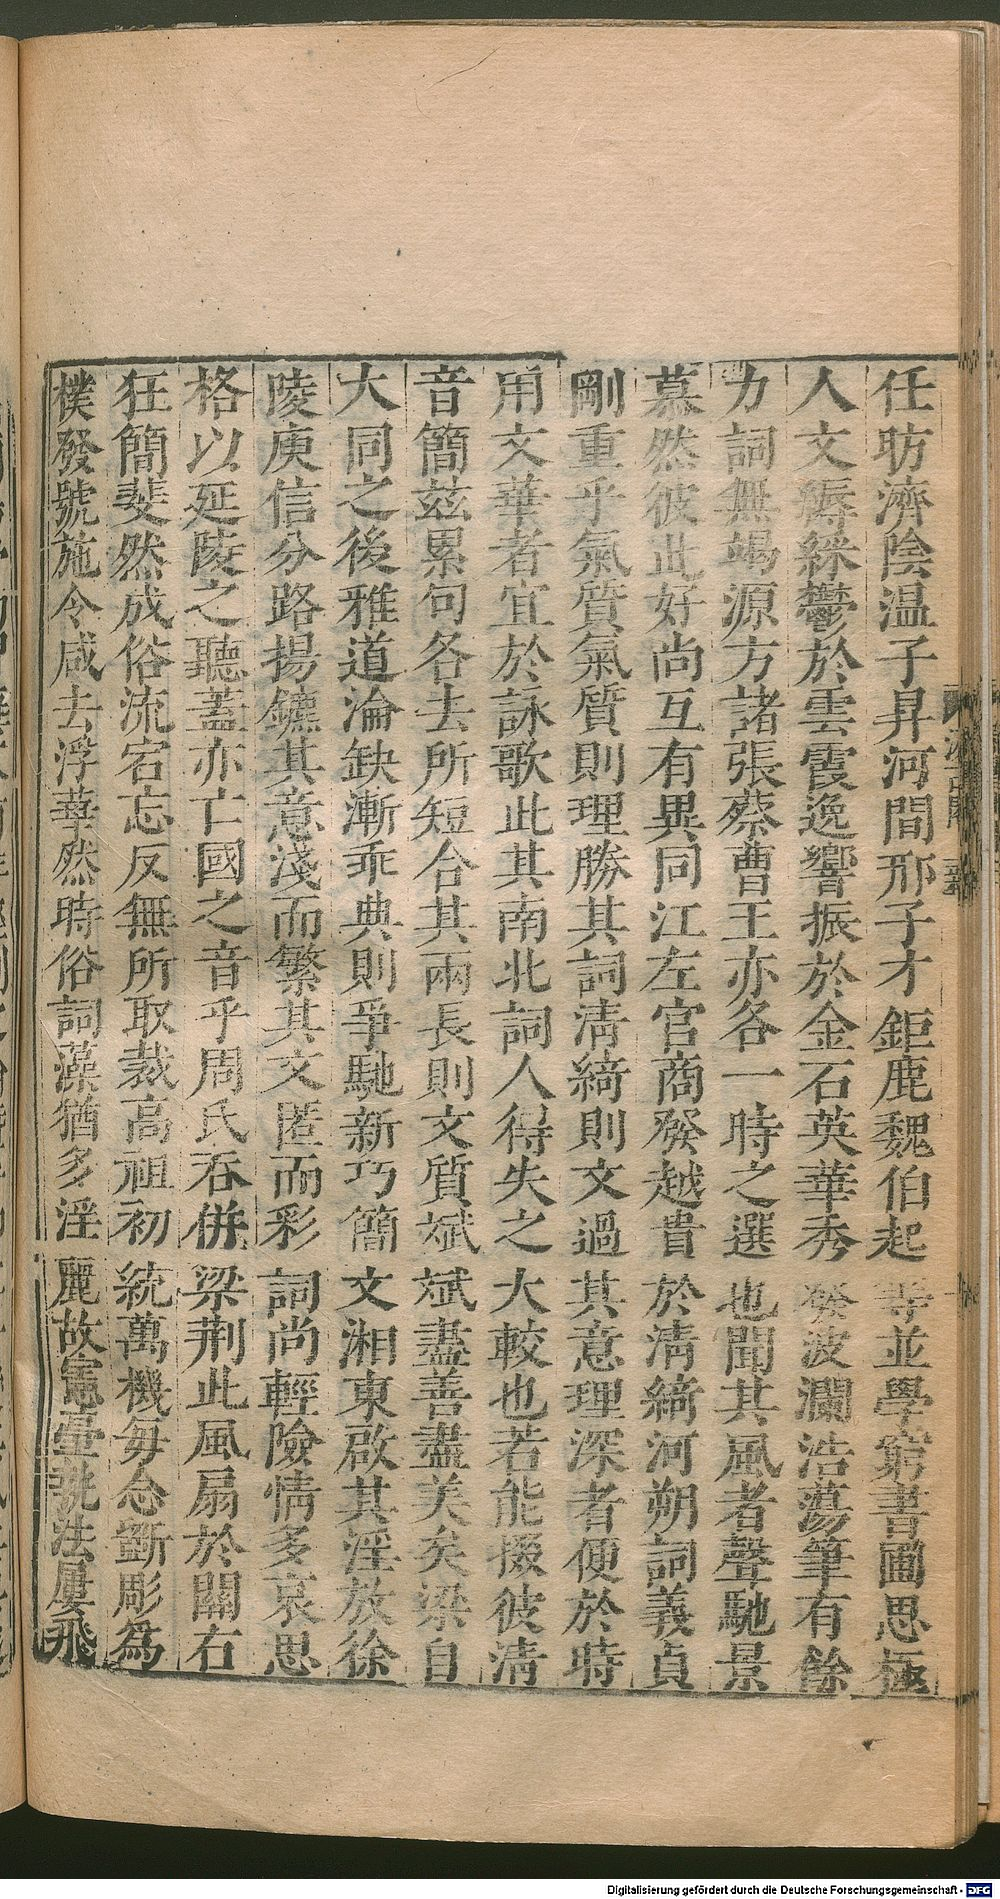 任昉濟陰温子昇河間邢子才鉅鹿魏伯起等並學窮書圃思極
人文縟綵鬱於雲霞逸響振於金石英華秀發波瀾浩蕩筆有餘
力詞無竭源方諸張蔡曹王亦各一時之選也聞其風者聲馳景
慕然彼此好尚互有異同江左宮商發越貴於清綺河朔詞義貞
剛重乎氣質氣質則理勝其詞清綺則文過其意理深者便於時
用文華者宜於詠歌此其南北詞人得失之大較也若能掇彼清
音簡茲累句各去所短合其兩長則文質斌斌盡善盡美矣梁自
大同之後雅道淪缺漸乖典則爭馳新巧簡文湘東啟其淫放徐
陵庾信分路揚鑣其意淺而繁其文匿而彩詞尚輕險情多哀思
格以延陵之聽蓋亦亡國之音乎周氏吞併梁荊此風扇於關右
狂簡斐然成俗流宕忘反無所取裁高祖初統萬機每念斲彫為
樸發號施令咸去浮華然時俗詞藻猶多淫麗故憲臺執法屢飛
Digitalisierung gefördert durch die Deutsche Forschungsgemeinschaft - DFG